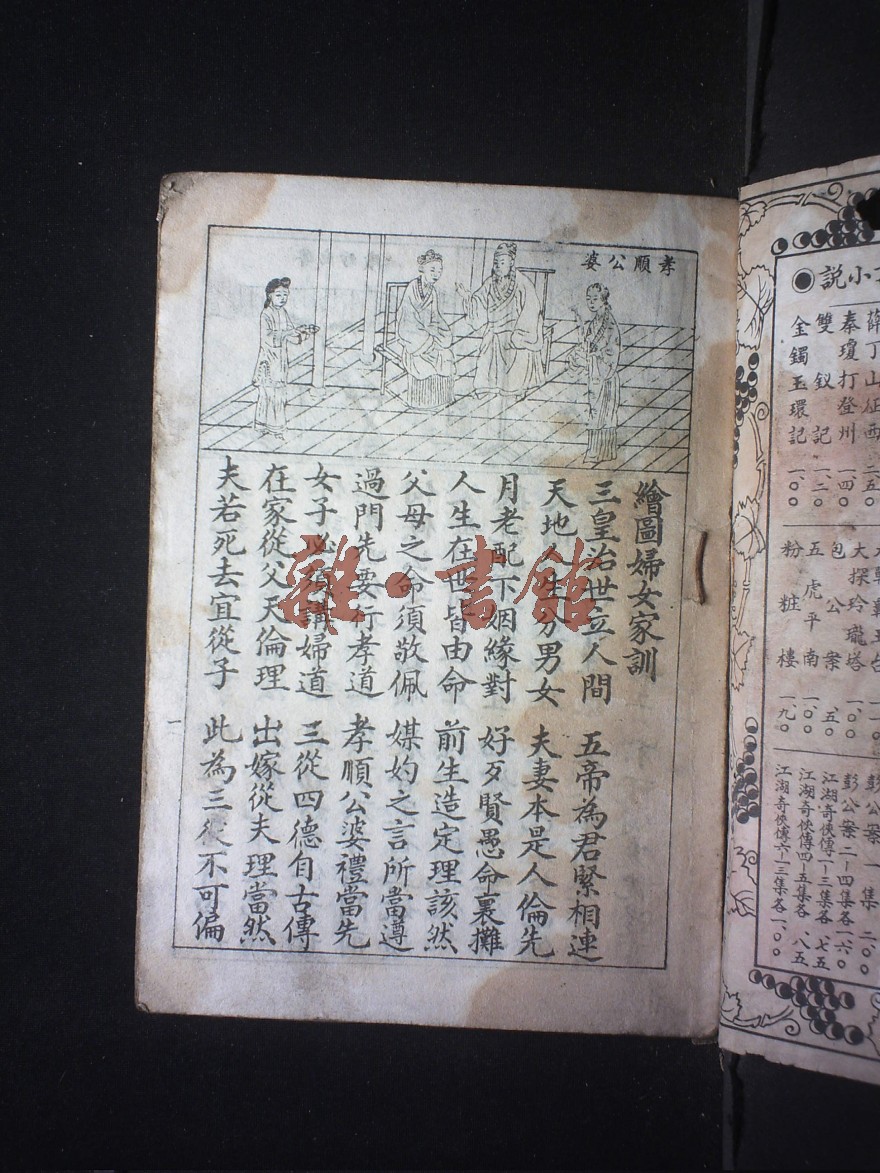 小說●
薛丁山征西
秦瓊打登州 一.四〇
雙釵記 一.二〇
金鐲玉環記 一.〇〇
大探玲瓏塔 一.〇〇
包公案 .五〇
五虎平南 一.〇〇
粉粧樓 一.九〇
彭公案一集 二.〇〇
彭公案二-四集各一.六〇
江湖奇俠傳一-三集各.七五
江湖奇俠傳四-五集各.八五
江湖奇俠傳六-三集各一.〇〇
孝順公婆
繪圖婦女家訓
三皇治世立人間 五帝為君緊相連
天地人生分男女 夫妻本是人倫先
月老配下姻緣對 好歹賢愚命裏攤
人生在世皆由命 前生造定理該然
父母之命須敬佩 媒妁之言所當遵
過門先要行孝道 孝順公婆禮當先
女子必須講婦道 三從四德自古傳
在家從父天倫理 出嫁從夫理當然
夫若死去宜從子 此為三從不可偏
一
雜·書館